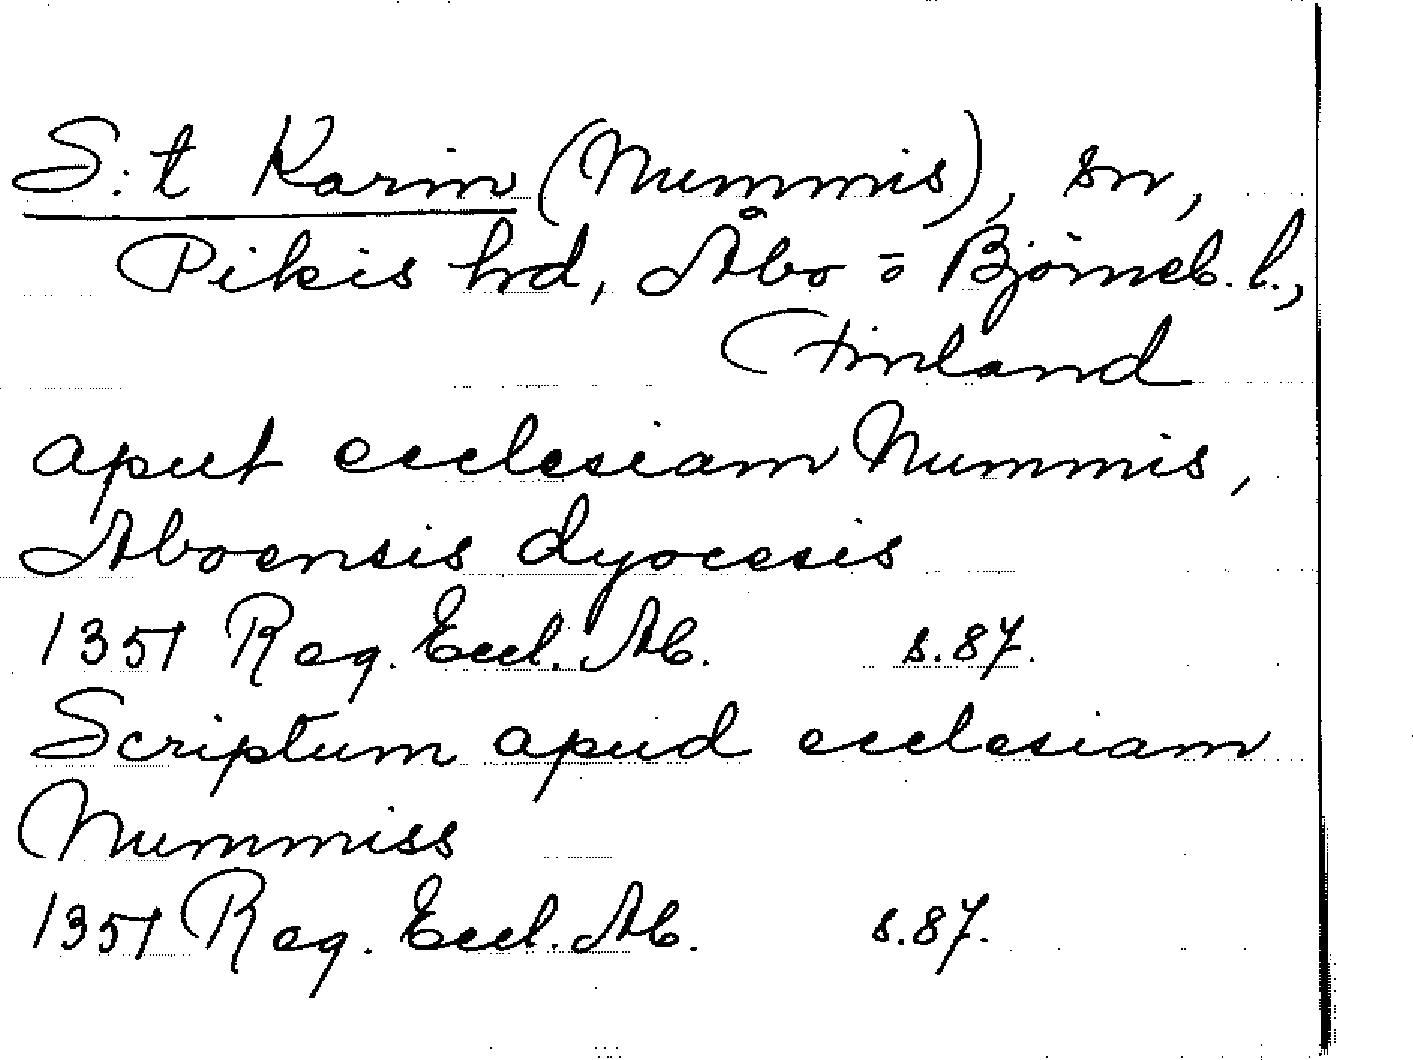 S:t Karin (Nummis), sn,
Pikis hd, Åbo = Björneb. l.,
Finland
aput ecclesiam Nummis,
Aboensis dyocesis
1351 Reg. Eccl. Ab. s. 87.
Scriptum apud ecclesiam
Nummiss
1351 Reg. Eccl. Ab. s. 87.